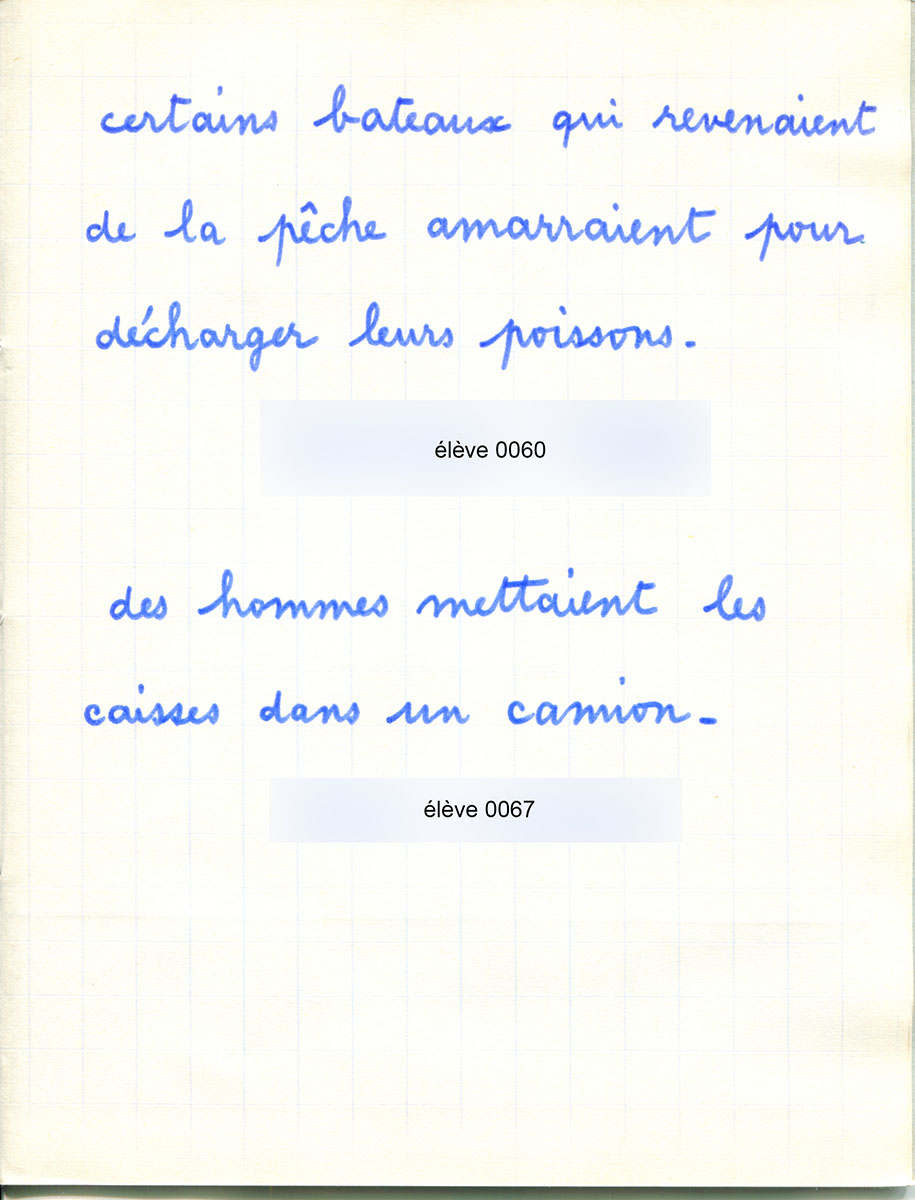 certains bateaux qui revenaient
de la pêche amarraient pour
décharger leurs poissons.
élève 0060
des hommes mettaient les
caisses dans un camion.
élève 0067